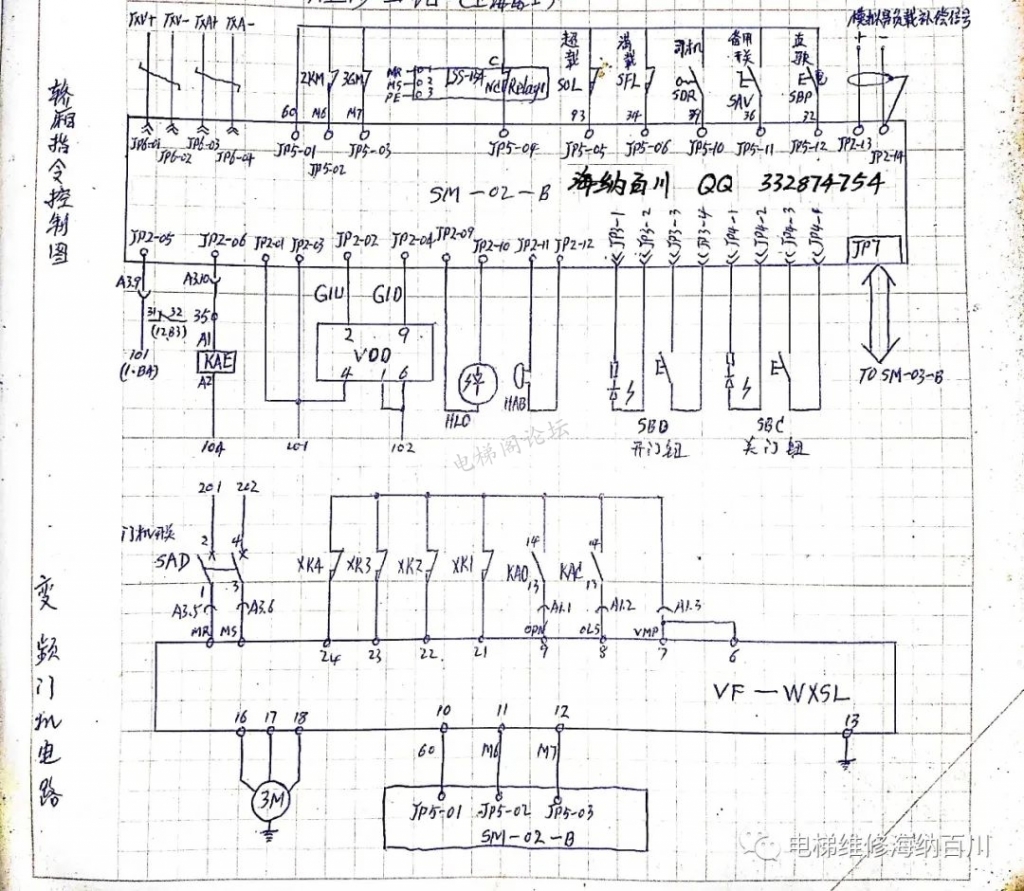 TXV+ TXV- TXA+ TXA-
模拟量负载补偿信号
+ -
超载 满载 司机 备用开关 直驶
2KM 3GM
MR 1
MS 2
PE 3
LSS-15A
C
NC
Relays
SOL SFL SDR SAV SBP
60 M6 M7 93 34 39 36 32
JP6-01 JP6-02 JP6-03 JP6-04 JP5-01 JP5-02 JP5-03 JP5-04 JP5-05 JP5-06 JP5-10 JP5-11 JP5-12 JP2-13 JP2-14
轿厢指令控制图
SM-02-B
海纳百川 QQ 332874754
JP2-05 JP2-06 JP2-01 JP2-03 JP2-02 JP2-04 JP2-09 JP2-10 JP2-11 JP2-12 JP3-1 JP3-2 JP3-3 JP3-4 JP4-1 JP4-2 JP4-3 JP4-4
JP7
A3.9 A3.10
31 32
(12.B3)
35
101
(1.BA)
A1
KAE
A2
GIU GID
2 9
VOD
4 1 6
HLC HAB
TO SM-03-B
104 201 102
SBD
开门钮
SBC
关门钮
电梯阁论坛
201 202
门机开关
SAD
2 4
1 3
A3.5 A3.6
MR MS
XK4 XK3 XK2 XK1 KAO KAC
14 14
13 13
A1.1 A1.2 A1.3
OPN CLS VMP
24 23 22 21 9 8 7 6
变频门机电路
VF-WXSL
16 17 18 10 11 12 13
60 M6 M7
3M
JP5-01 JP5-02 JP5-03
SM-02-B
电梯维修海纳百川